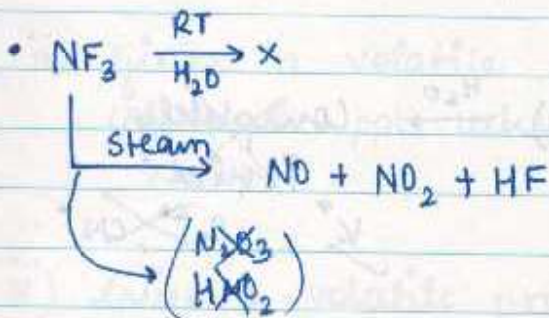 RT
• NF₃ → X
H₂O
steam
NO + NO₂ + HF
(N₂O₃
HNO₂)